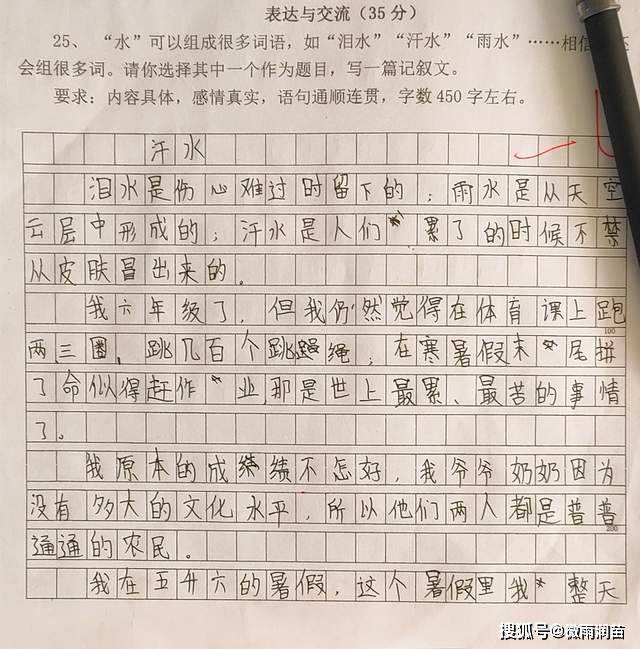 表达与交流（35 分）
25、 “水”可以组成很多词语，如“泪水”“汗水”“雨水”……相信
会组很多词。请你选择其中一个作为题目，写一篇记叙文。
要求：内容具体，感情真实，语句通顺连贯，字数 450 字左右。
汗水
泪水是伤心难过时留下的；雨水是从天空
云层中形成的；汗水是人们累了的时候不禁
从皮肤冒出来的。
我六年级了，但我仍然觉得在体育课上跑
100
两三圈，跳几百个跳绳；在寒暑假末尾拼
了命似得赶作业，那是世上最累、最苦的事情
了。
我原本的成绩不怎好，我爷爷奶奶因为
没有多大的文化水平，所以他们两人都是普普
200
通通的农民。
我在五升六的暑假，这个暑假里我整天
搜狐号@微雨润苗